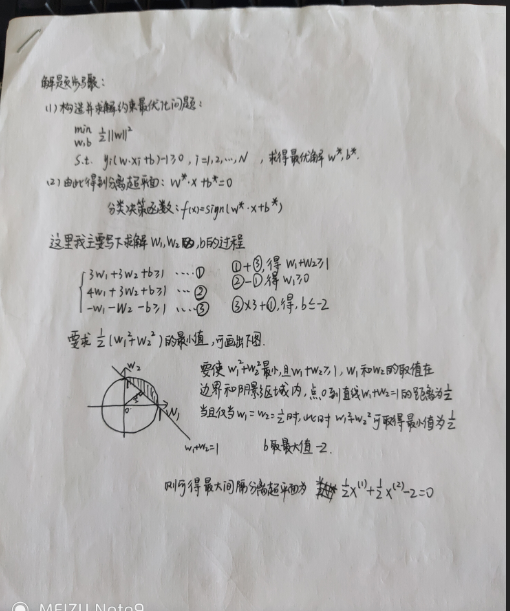 解题步骤：
(1) 构造并求解约束最优化问题：
min w,b ½||w||²
s.t. yi(w·xi+b)-1≥0, i=1,2,…,N ，求得最优解 w*,b*.
(2) 由此得到分离超平面：w*·x+b*=0
分类决策函数：f(x)=sign(w*·x+b*)
这里我主要写下求解 w₁,w₂ ,b的过程
3w₁+3w₂+b≥1 ……①
4w₁+3w₂+b≥1 ……②
-w₁-w₂-b≥1 ……③
①+③,得 w₁+w₂≥1
②-①,得 w₁≥0
③×3+①,得, b≤-2
要求 ½(w₁²+w₂²)的最小值，可画出下图.
w₂
1
0
1
w₁
w₁+w₂=1
要使 w₁²+w₂²最小,且w₁+w₂≥1, w₁和w₂的取值在
边界和阴影区域内，点0到直线w₁+w₂=1的距离为½
当且仅当w₁=w₂=½时,此时 w₁²+w₂²可取得最小值为½
b取最大值-2.
则可得最大间隔分离超平面为 ½x⁽¹⁾+½x⁽²⁾-2=0
MEIZU Note9